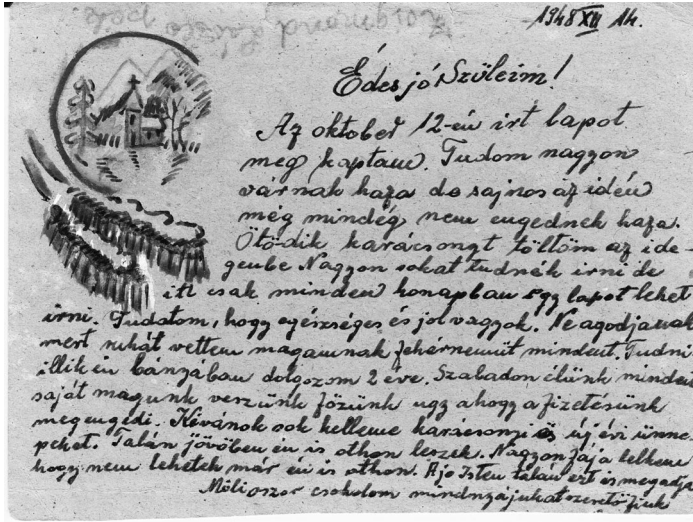 Zsigmond László
1948 XII 14.
Édes jó Szüleim!
Az oktober 12-én irt lapot
meg kaptam. Tudom nagyon
várnak haza de sajnos az idén
még mindég nem engednek haza.
Ötödik karácsonyt töltöm az ide-
genbe Nagyon sokat tudnék irni de
itt csak minden honapban egy lapot lehet
irni. Tudatom, hogy egészséges és jol vagyok. Ne agodjanak
mert ruhát vettem magamnak fehérnemüt mindent. Tudni
illik én bányában dolgozom 2 éve. Szabadon élünk mindent
saját magunk veszünk főzünk ugy ahogy a fizetésünk
megengedi. Kévánok sok kelleme karácsonyi és új évi ünne
peket. Talán jövőben én is othon leszek. Nagyon fája lelkem
hogy nem lehetek már én is othon. A jo Isten talán ezt is megadja
Milioszor csokolom mindnyájukat szerető fiuk